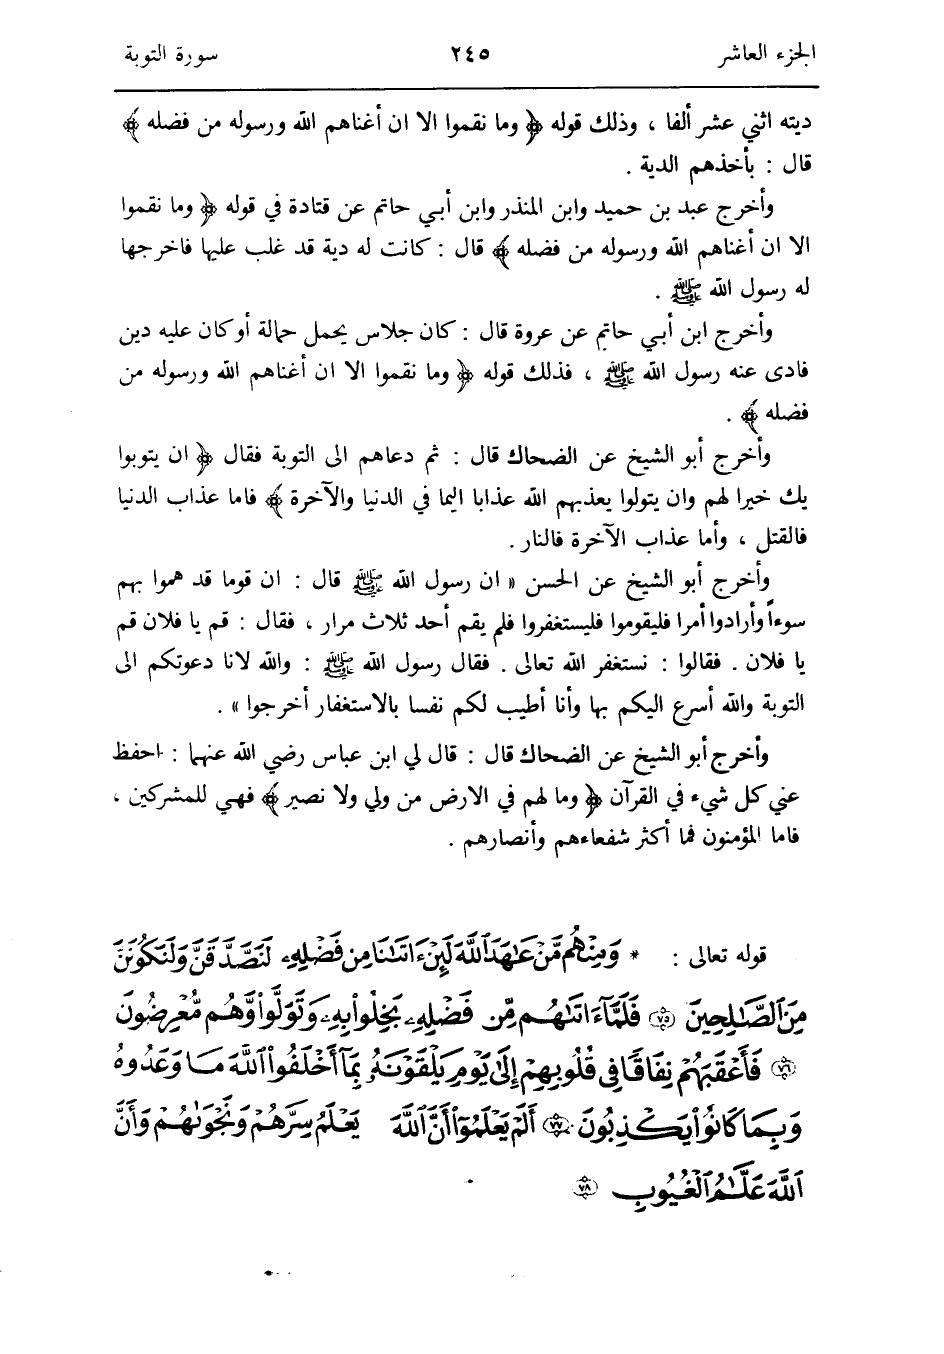 الجزء العاشر ٢٤٥ سورة التوبة
ديته اثني عشر ألفا ، وذلك قوله ﴿ وما نقموا الا ان أغناهم الله ورسوله من فضله ﴾
قال : بأخذهم الدية .
وأخرج عبد بن حميد وابن المنذر وابن أبي حاتم عن قتادة في قوله ﴿ وما نقموا
الا ان أغناهم الله ورسوله من فضله ﴾ قال : كانت له دية قد غلب عليها فاخرجها
له رسول الله ﷺ .
وأخرج ابن أبي حاتم عن عروة قال : كان جلاس يحمل حمالة أو كان عليه دين
فادى عنه رسول الله ﷺ ، فذلك قوله ﴿ وما نقموا الا ان أغناهم الله ورسوله من
فضله ﴾ .
وأخرج أبو الشيخ عن الضحاك قال : ثم دعاهم الى التوبة فقال ﴿ ان يتوبوا
يك خيرا لهم وان يتولوا يعذبهم الله عذابا اليما في الدنيا والآخرة ﴾ فاما عذاب الدنيا
فالقتل ، وأما عذاب الآخرة فالنار .
وأخرج أبو الشيخ عن الحسن « ان رسول الله ﷺ قال : ان قوما قد هموا بهم
سوءاً وأرادوا أمرا فليقوموا فليستغفروا فلم يقم أحد ثلاث مرار ، فقال : قم يا فلان قم
يا فلان . فقالوا : نستغفر الله تعالى . فقال رسول الله ﷺ : والله لانا دعوتكم الى
التوبة والله أسرع اليكم بها وأنا أطيب لكم نفسا بالاستغفار أخرجوا » .
وأخرج أبو الشيخ عن الضحاك قال : قال لي ابن عباس رضي الله عنهما : احفظ
عني كل شيء في القرآن ﴿ وما لهم في الارض من ولي ولا نصير ﴾ فهي للمشركين ،
فاما المؤمنون فما أكثر شفعاءهم وأنصارهم .
قوله تعالى : * وَمِنْهُم مَّنْ عَٰهَدَ ٱللَّهَ لَئِنْ ءَاتَىٰنَا مِن فَضْلِهِۦ لَنَصَّدَّقَنَّ وَلَنَكُونَنَّ
مِنَ ٱلصَّٰلِحِينَ ٧٥ فَلَمَّآ ءَاتَىٰهُم مِّن فَضْلِهِۦ بَخِلُوا۟ بِهِۦ وَتَوَلَّوا۟ وَّهُم مُّعْرِضُونَ
٧٦ فَأَعْقَبَهُمْ نِفَاقًا فِى قُلُوبِهِمْ إِلَىٰ يَوْمِ يَلْقَوْنَهُۥ بِمَآ أَخْلَفُوا۟ ٱللَّهَ مَا وَعَدُوهُ
وَبِمَا كَانُوا۟ يَكْذِبُونَ ٧٧ أَلَمْ يَعْلَمُوٓا۟ أَنَّ ٱللَّهَ يَعْلَمُ سِرَّهُمْ وَنَجْوَىٰهُمْ وَأَنَّ
ٱللَّهَ عَلَّٰمُ ٱلْغُيُوبِ ٧٨